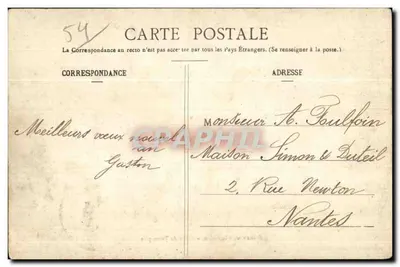 54
CARTE POSTALE
La Correspondance au recto n'est pas acceptée par tous les Pays Étrangers. (Se renseigner à la poste.)
CORRESPONDANCE
ADRESSE
Meilleurs vœux
an
Gaston
Monsieur A. Foulfoin
Maison Simon & Duteil
2, Rue Newton
Nantes
CPAPHIL